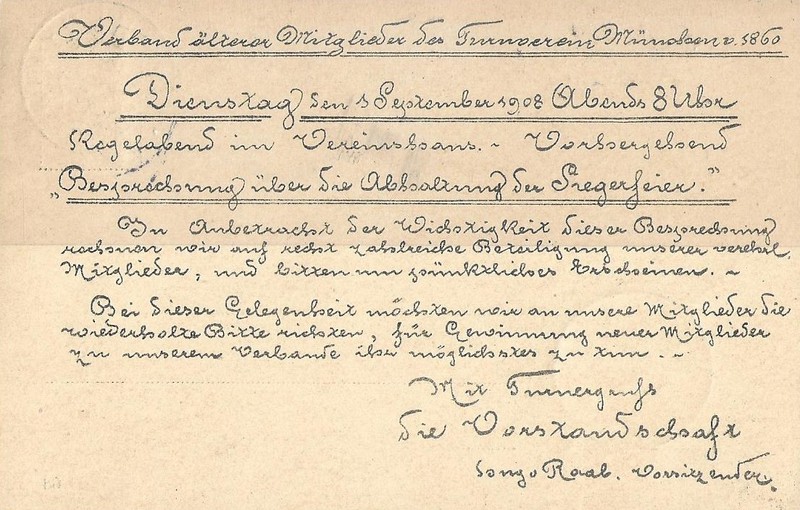 Verband älterer Mitglieder des Turnverein München v. 1860
Dienstag den 1 September 1908 Abends 8 Uhr
Kegelabend im Vereinshaus. - Vorhergehend
„Besprechung über die Abhaltung der Siegerfeier."
In Anbetracht der Wichtigkeit dieser Besprechung
rechnen wir auf recht zahlreiche Beteiligung unserer verehrl.
Mitglieder, und bitten um pünktliches Erscheinen. -
Bei dieser Gelegenheit möchten wir an unsere Mitglieder die
wiederholte Bitte richten, für Gewinnung neuer Mitglieder
zu unserem Verbande ihr möglichstes zu tun. -
Mit Turnergruß
die Vorstandschaft
Raab. Vorsitzender.